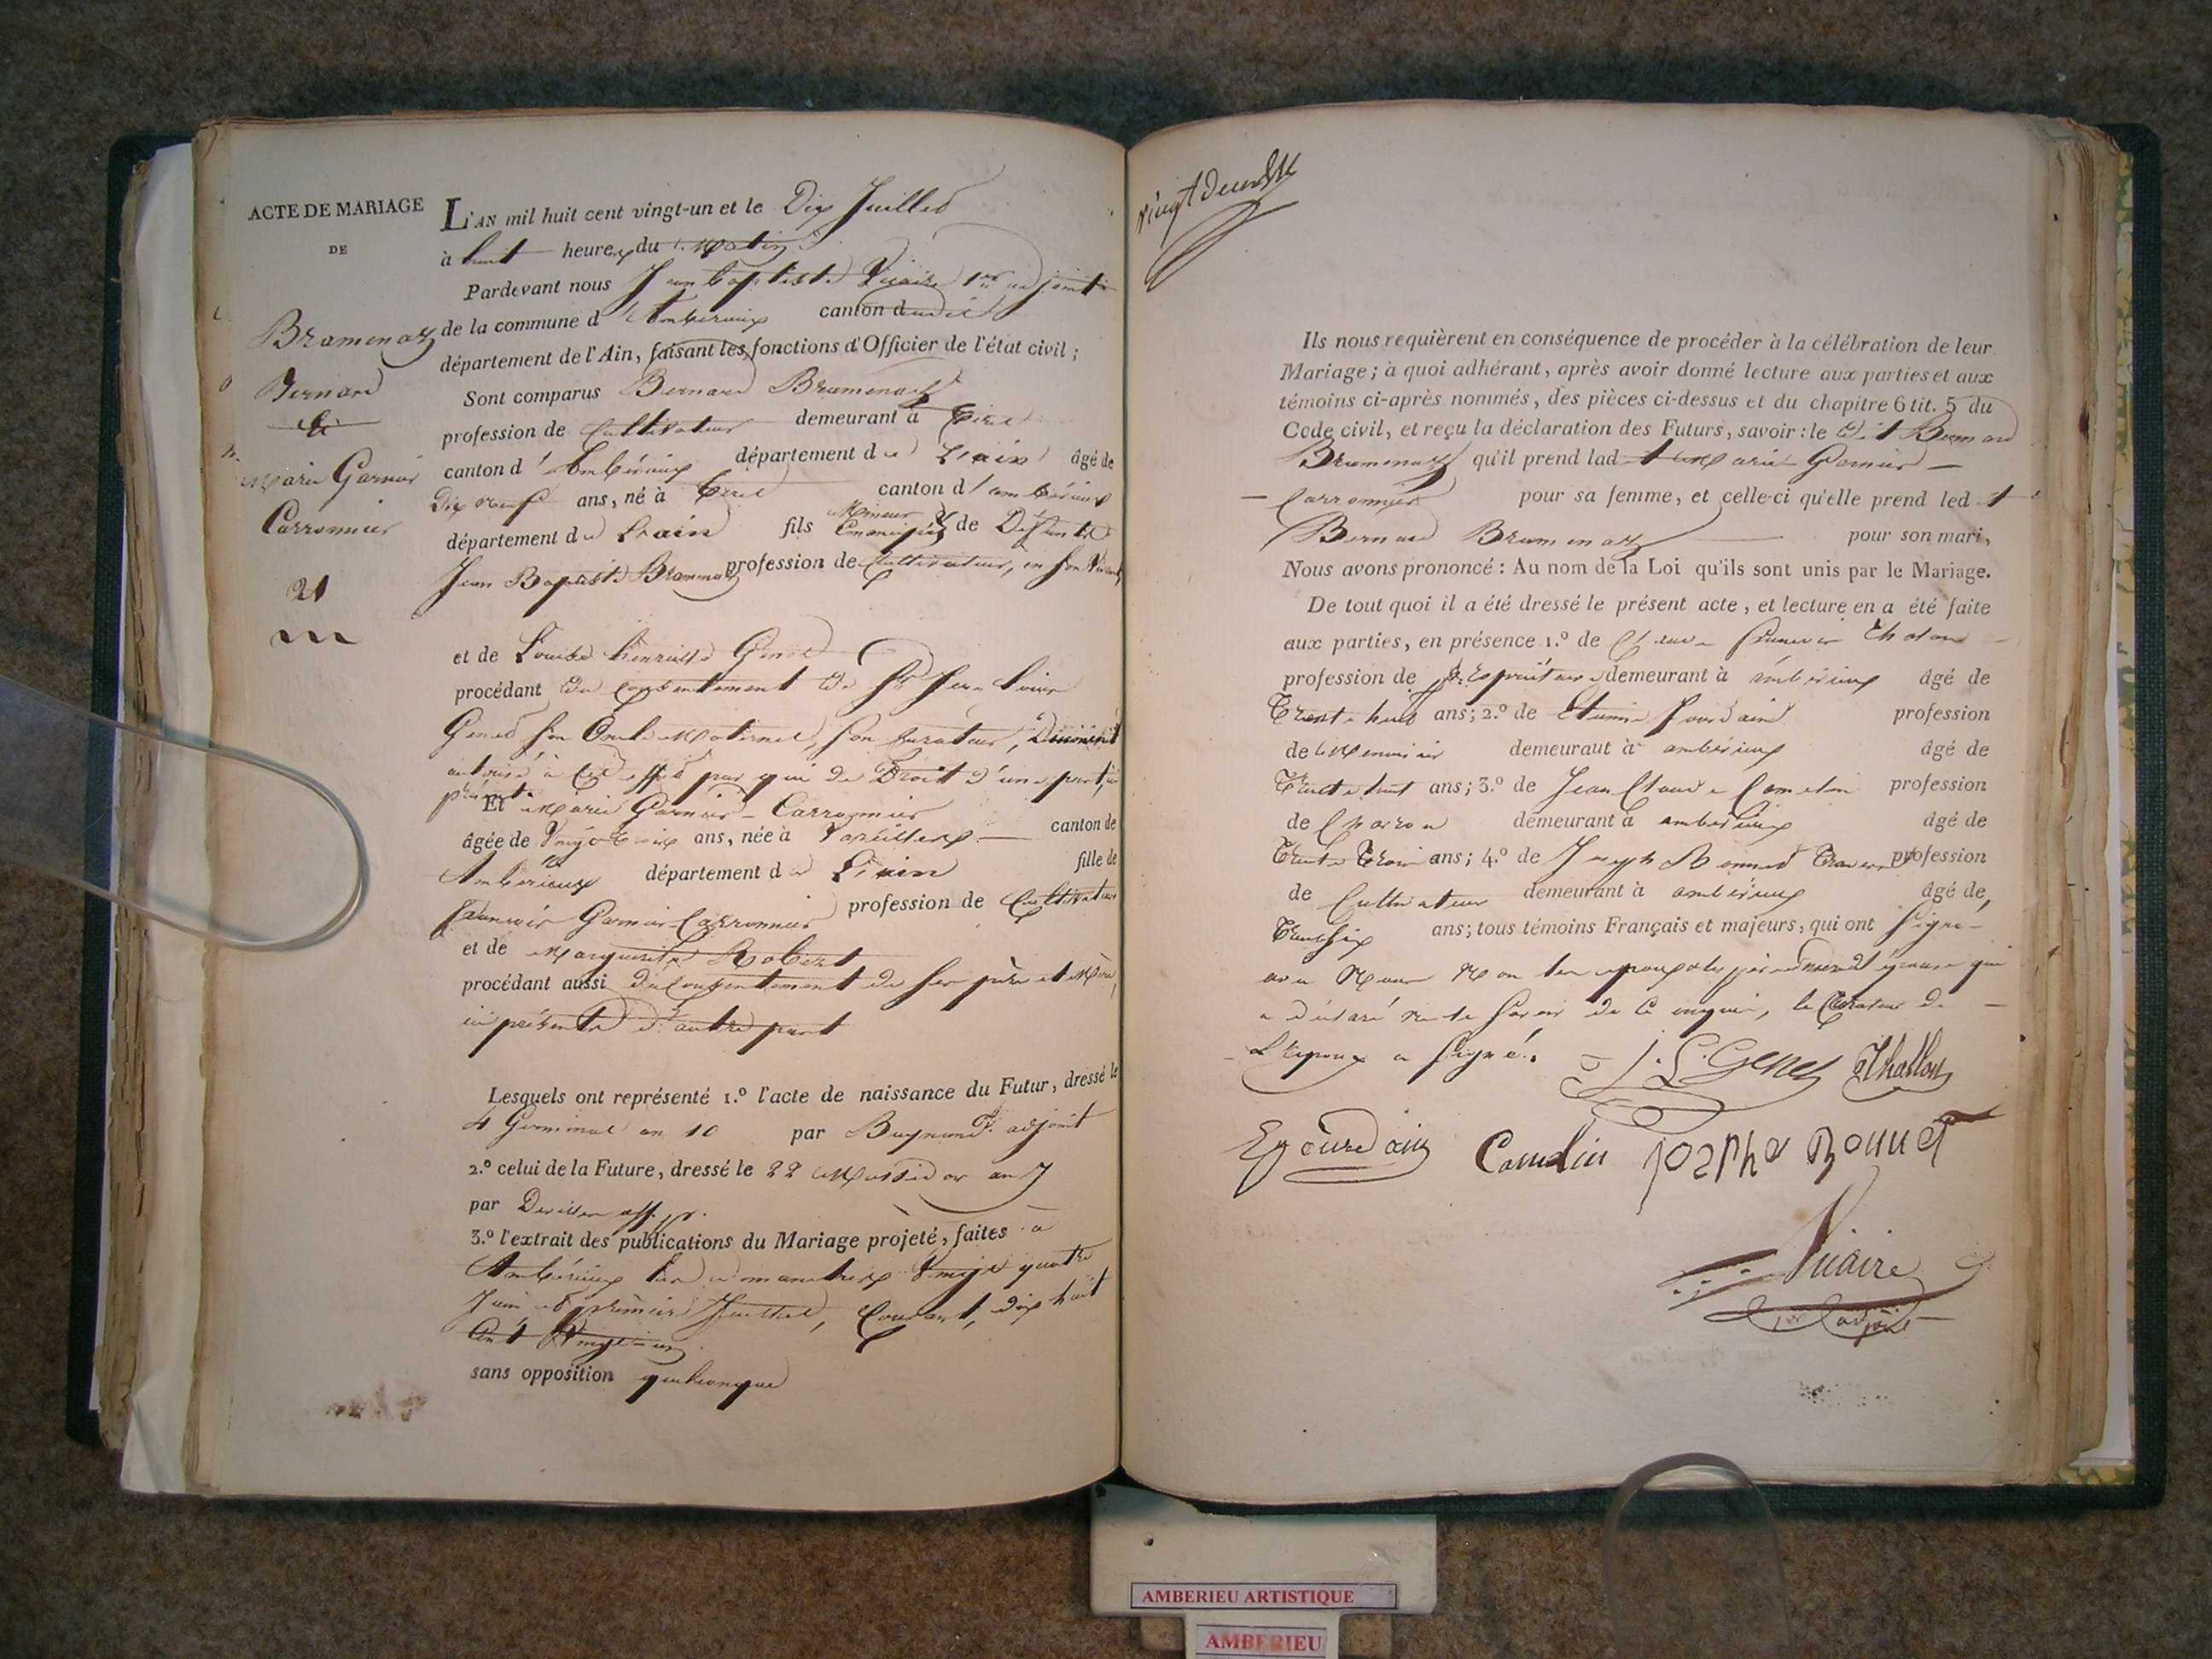 ACTE DE MARIAGE
DE
Bramenaz
Bernard
&
Marie Garnier
Carronnier
21
L'AN mil huit cent vingt-un et le Dix Juillet
à huit heures du Matin
Pardevant nous Jean Baptiste Vicaire 1er adjoint
de la commune d'Ambérieux canton dudit
département de l'Ain, faisant les fonctions d'Officier de l'état civil ;
Sont comparus Bernard Bramenaz
profession de Cultivateur demeurant à
canton d'Ambérieux département de L'ain âgé de
Dix neuf ans, né à canton d'ambérieux
département de L'ain fils Mineur Emancipé de Défunt
Jean Baptiste Bramenaz profession de Cultivateur, en son vivant,
et de Louise henriette Genet
procédant du consentement de Sr Jean Louis
Genet son Oncle Maternel, son curateur, Duement
autorisé à cet effet par qui de Droit d'une part, ici
présent
Et Marie Garnier-Carronnier
âgée de Vingt trois ans, née à Vareilles canton de
Ambérieux département de L'ain fille de
francois Garnier-Carronnier profession de Cultivateur
et de Marguerite Robert
procédant aussi du consentement de ses père et Mère,
ici présents d'autre part
Lesquels ont représenté 1.º l'acte de naissance du Futur, dressé le
4 Germinal an 10 par adjoint
2.º celui de la Future, dressé le 22 Messidor an 7
par off. p.
3.º l'extrait des publications du Mariage projeté, faites à
Ambérieux les Dimanches Vingt quatre
Juin et premier Juillet, Courant, dix huit
Cent Vingt-un.
sans opposition quelconque
vingt deux
Ils nous requièrent en conséquence de procéder à la célébration de leur
Mariage ; à quoi adhérant, après avoir donné lecture aux parties et aux
témoins ci-après nommés, des pièces ci-dessus et du chapitre 6 tit. 5 du
Code civil, et reçu la déclaration des Futurs, savoir : le dit Bernard
Bramenaz qu'il prend ladt Marie Garnier
Carronnier pour sa femme, et celle-ci qu'elle prend led t
Bernard Bramenaz pour son mari,
Nous avons prononcé : Au nom de la Loi qu'ils sont unis par le Mariage.
De tout quoi il a été dressé le présent acte, et lecture en a été faite
aux parties, en présence 1.º de Claude francois
profession de propriétaire demeurant à ambérieux âgé de
Trente huit ans ; 2.º de Etienne Jourdain profession
de Menuisier demeuraut à ambérieux âgé de
Trente huit ans ; 3.º de Jean Claude Camelin profession
de Charron demeurant à ambérieux âgé de
Trente Trois ans ; 4.º de Joseph Bonnet profession
de Cultivateur demeurant à ambérieux âgé de,
Trente six ans ; tous témoins Français et majeurs, qui ont signé
avec Nous Non les epoux
a déclaré ne le savoir de ce enquis, le Curateur de
L'Epoux a signé.
J. L. Genet Thallon
E Jourdain Camelin joseph Bonnet
Vicaire
1er adjoint
AMBERIEU ARTISTIQUE
AMBERIEU